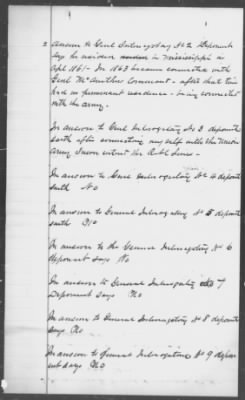 2 answer to Genl Interrogatory No 2 Deponent
says he resided in Mississippi in
Apl 1861 - In 1863 became connected with
Genl McArthurs Command - after that time
had no permanent residence - being connected
with the army.
In answer to Genl Interrogatory No 3 deponent
saith after connecting myself with the Union
Army I never entered the Rebel lines -
In answer to Genl Interrogatory No 4 deponent
saith No
In answer to General Interrogatory No 5 deponent
saith No
In answer to the General Interrogatory No 6
deponent says No
In answer to General Interrogatory 7
Deponent says No
In answer to General Interrogatory No 8 deponent
says No
In answer to General Interrogatory No 9 depon
ent says No